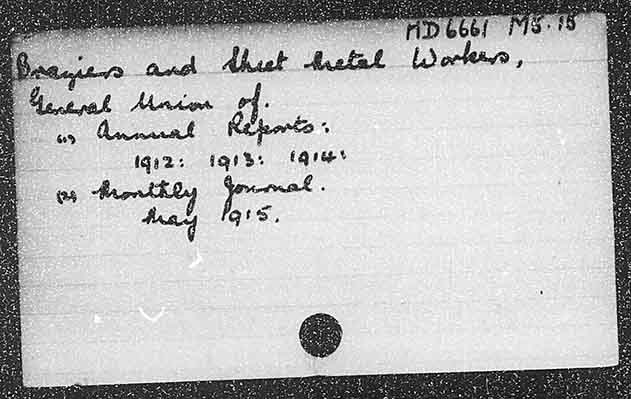 MD6661 M5.15
Braziers and Sheet Metal Workers,
General Union of.
(1) Annual Reports:
1912: 1913: 1914:
(2) Monthly Journal.
May 1915.